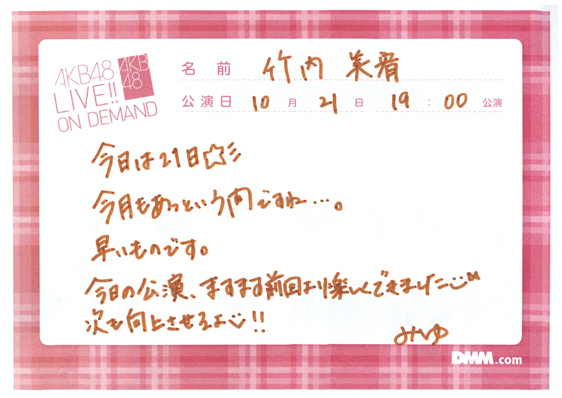 AKB48
LIVE!!
ON DEMAND
AKB
48
名前 竹内 美宥
公演日 10 月 21 日 19 : 00 公演
今日は21日☆彡
今月もあっという間ですね…。
早いものです。
今日の公演、ますます前回より楽しくできました
次も向上させるよ!!
みゆ
DMM.com